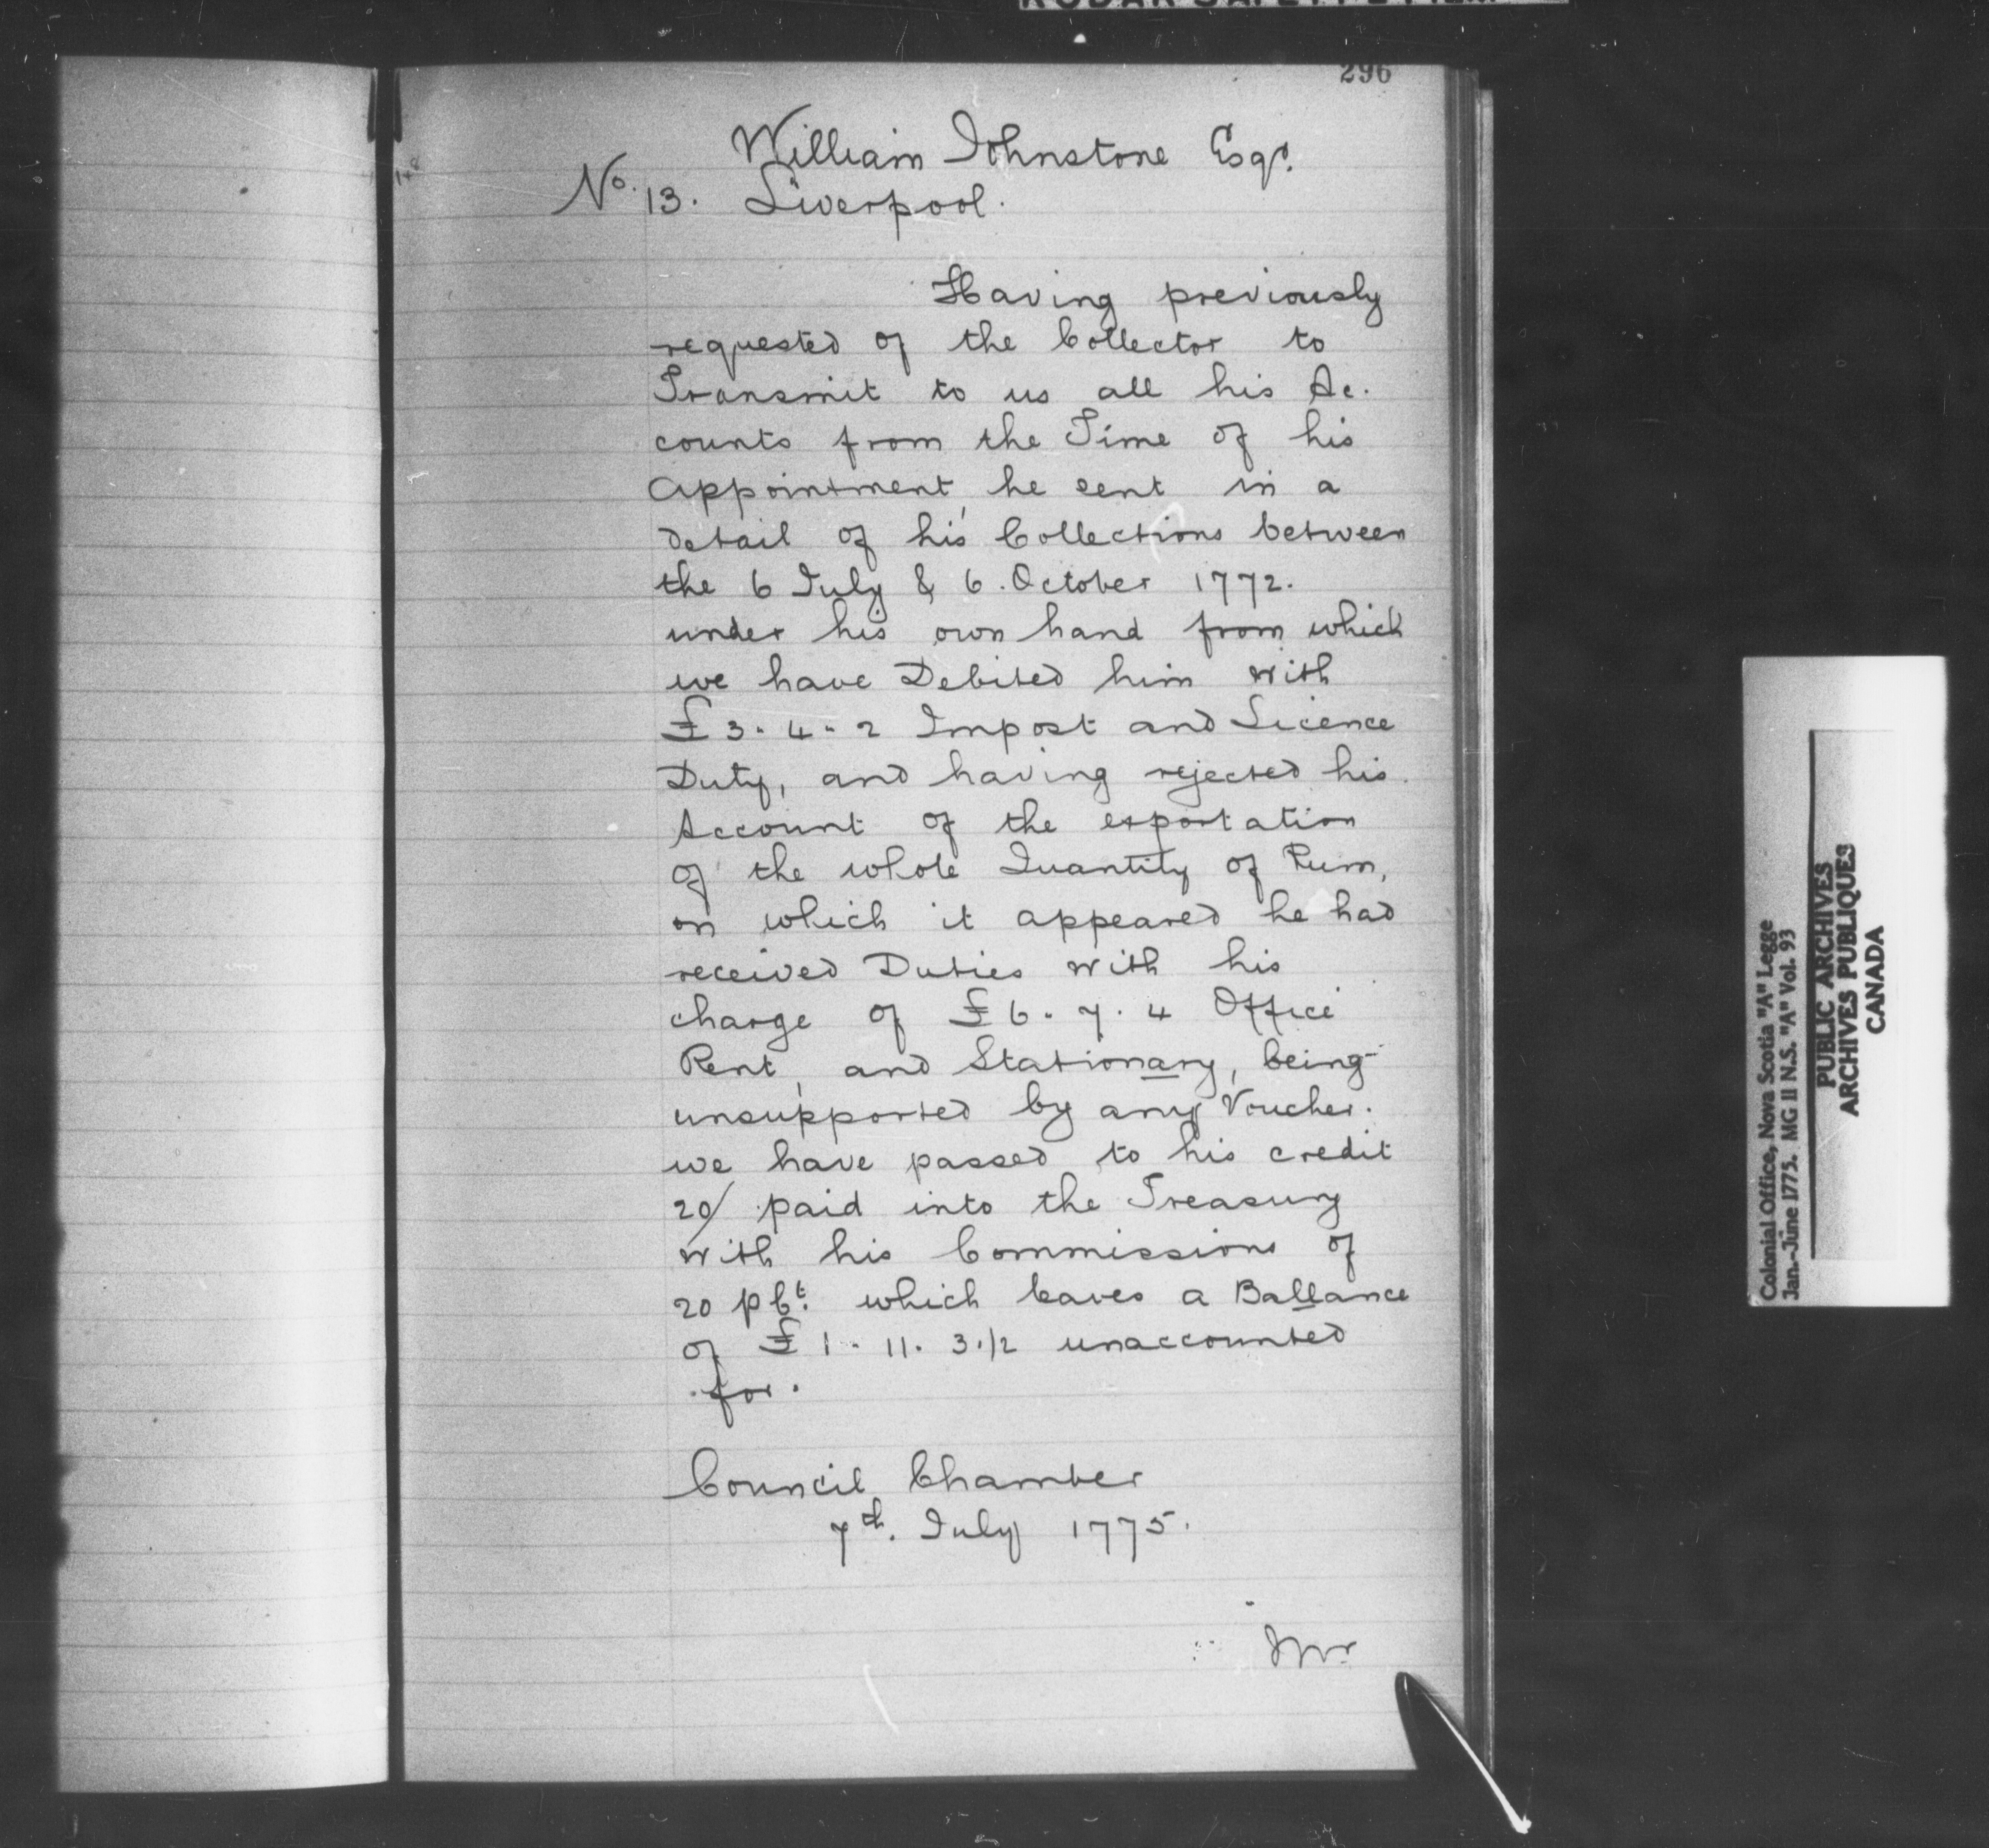 296
William Johnstone Esqr.
No. 13. Liverpool.
Having previously
requested of the Collector to
Transmit to us all his Ac.
counts from the Time of his
Appointment, he sent in a
detail of his Collections between
the 6 July & 6. October 1772.
under his own hand from which
we have Debited him with
£3-4-2 Impost and Licence
Duty, and having rejected his
Account of the exportation
of the whole Quantity of Rum,
on which it appeared he had
received Duties with his
charge of £6-7-4 Office
Rent, and Stationary, being
unsupported by any Voucher.
we have passed to his credit
20/ paid into the Treasury
with his Commissions of
20 p Ct. which leaves a Ballance
of £1-11-3.1/2 unaccounted
for.
Council Chamber
7th. July 1775.
Mr
Colonial Office, Nova Scotia "A" Legge
Jan.-June 1775. MG 11 N.S. "A" Vol. 93
PUBLIC ARCHIVES
ARCHIVES PUBLIQUES
CANADA